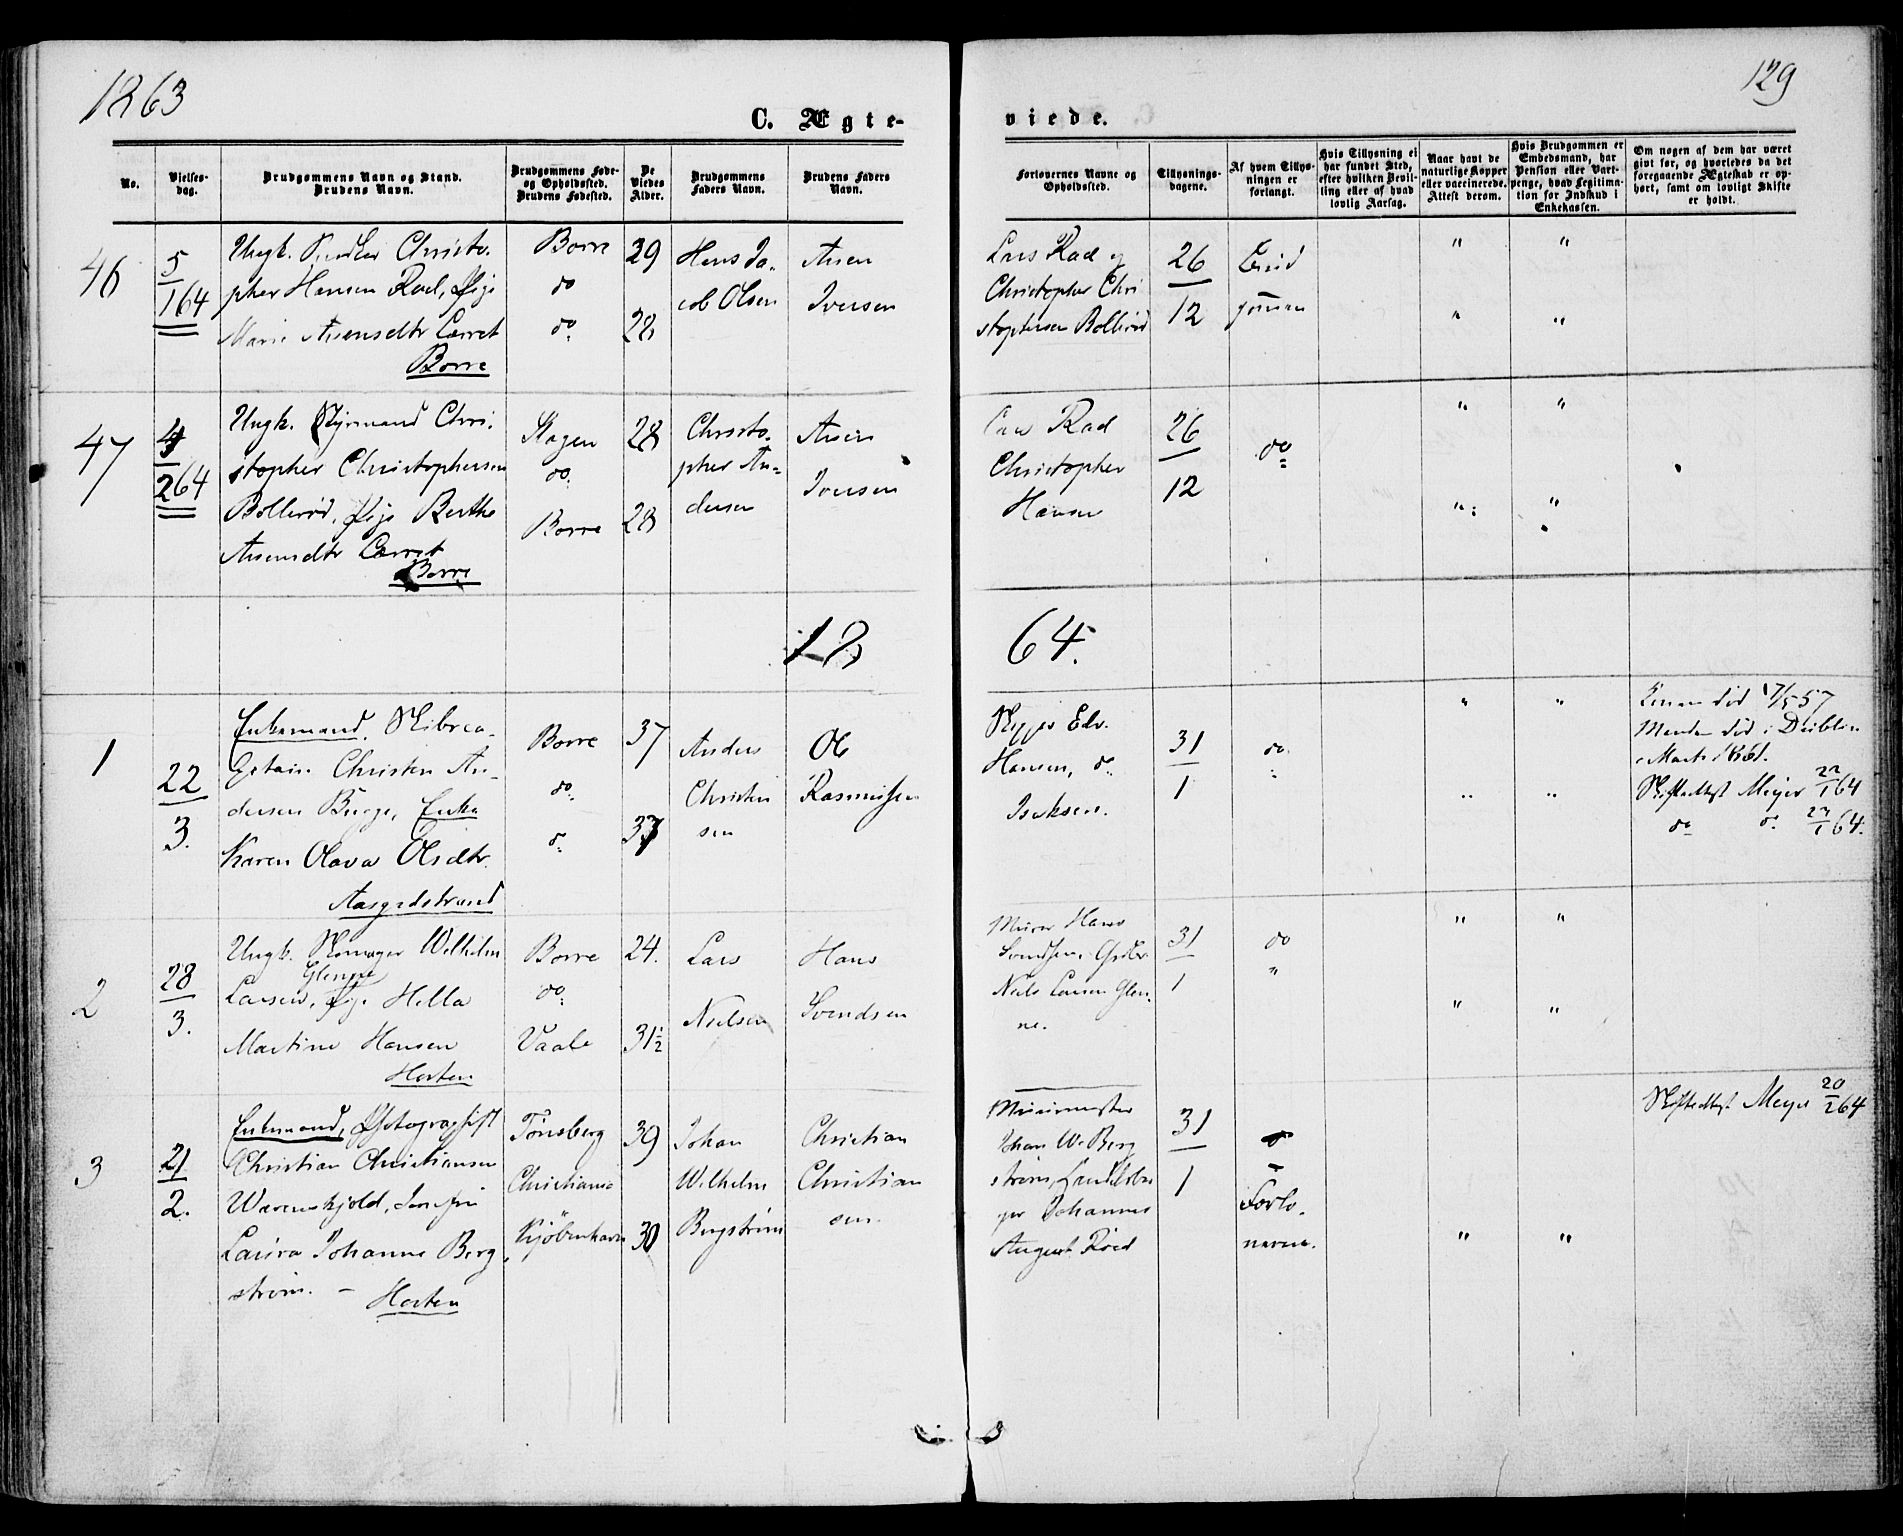 1863
129
C. Ægte-
viede.
No.
Vielses-
dag.
Brudgommens Navn og Stand.
Brudens Navn.
Brudgommens Føde-
og Opholdssted.
Brudens Fødested.
De
Viedes
Alder.
Brudgommens
Faders Navn.
Brudens Faders
Navn.
Forlovernes Navne og
Opholdssted.
Tillysnings-
dagene.
Af hvem Tillys-
ningen er
forlangt.
Hvis Tillysning ei
har fundet Sted,
efter hvilken Bevil-
ling eller af hvad
lovlig Aarsag.
Naar havt de
naturlige Kopper
eller vaccinerede.
Attest derom.
Hvis Brudgommen er
Embedsmand, har
Pension eller Vart-
penge, hvad Legitima-
tion for Indskud i
Enkekassen.
Om nogen af dem har været
givt før, og hvorledes da det
foregaaende Ægteskab er op-
hørt, samt om lovligt Skifte
er holdt.
46
5
1 64
Ungk. Christo-
pher Hansen Rad, Pige
Marie Ansensdtr Lerret
Borre
Borre
do
do
29
28
Hans Ja-
cob Olsen
Ansen
Iversen
Lars Rad og
Christopher Chri
stophersen Bollerød
26
12
" "
" "
47
4
2 64
Ungk. Styrmand Chri-
stopher Christophersen
Bollerød, Pige Berthe
Ansensdtr Lerret
Borre
Slagen
do
Borre
28
28
Christo-
pher An-
dersen
Ansen
Iversen
Lars Rad
Christopher
Hansen
26
12
do
" "
" "
18 64.
1
22
3.
Enkemand, Skibsca-
Christen An-
dersen Enke
Karen Olava Olsdtr.
Aasgardstrand
Borre
do
do
37
37
Anders
Christen
sen
Ole
Rasmussen
Edv.
Hansen, do
Isaksen.
31
1
do
" "
" "
Konen død 17/5 57
Manden død i Dublin
Marts 1861.
Skifteattest Meyer 22/1 64
do do 27/1 64.
2
28
3.
Ungk. Skomager Wilhelm
Glenne
Larsen, Pige Hella
Martine Hansen
Horten
Borre
do
Vaale
24.
31½
Lars
Nielsen
Hans
Svendsen
Murer Hans
Svendsen,
Niels Larsen Glen-
ne.
31
1
do
"
" "
" "
3
21
2.
Enkemand, Photographist
Christian Christiansen
Warenskjold,
Laura Johanne Berg
strøm. —
Horten
Tønsberg
Christiania
Kjöbenhavn
39
30
Johan
Wilhelm
Bergstrøm
Christian
Christian
sen
Muurmester
Johan W. Berg
strøm,
Johannes
August Röed
31
1
do
Forlo-
verne.
" "
Skifteattest Meyer 20/2 64